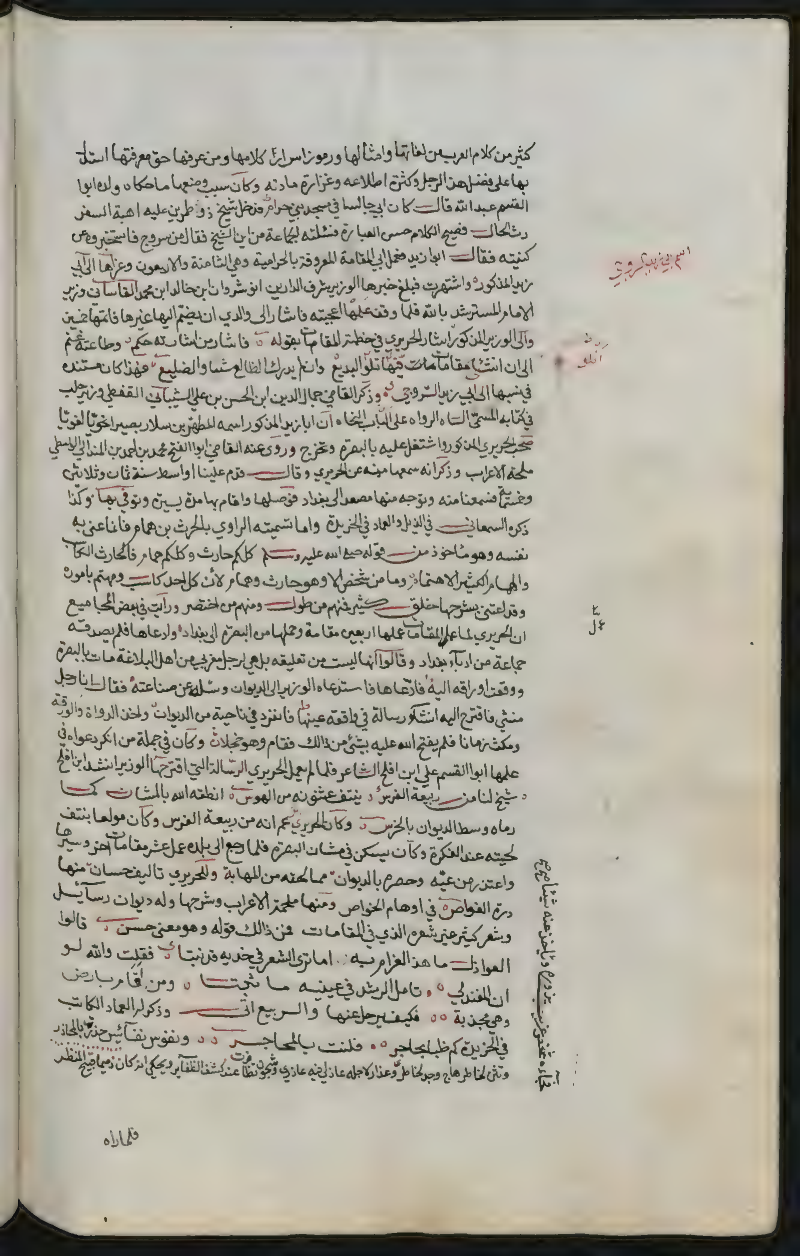 كثير من كلام العرب من لغاتها وامثالها ورموز اسرار كلامها ومن عرفها حق معرفتها استدل
بها على فضل هذا الرجل وكثرة اطلاعه وغزارة مادته وكان سبب وضعها ما حكاه ولده ابوا
القسم عبد الله قال كان ابي جالسا في مسجد بني حرام فدخل شيخ ذو طمرين عليه اهبة السفر
رث الحال فصيح الكلام حسن العبارة فسئلته الجماعة من اين الشيخ فقال من سروج فاستخبروه عن
كنيته فقال ابوا زيد فعمل ابي المقامة المعروفة بالحرامية وهي الثامنة والاربعون وعزاها الى ابي
زيد المذكور واشتهرت فبلغ خبرها الوزير شرف الدين انو شروان ابن خالد ابن محمد القاساني وزير
الامام المسترشد بالله فلما وقف عليها اعجبته فاشار الى والدي ان يضم اليها غيرها فاتمها خمسين
والى الوزير المذكور اشار الحريري في خطبة المقامات بقوله فاشار من اشارته حكم وطاعته غنم
الى ان انشئ مقامات اتلو فيها تلو البديع وان لم يدرك الظالع شاو الضليع فهذا كان مستنده
في نسبها الى ابي زيد السروجي وذكر القاضي جمال الدين ابن الحسن بن علي الشيباني القفطي وزير حلب
في كتابه المسمى انباه الرواه على انباب النحاه ان ابا زيد المذكور اسمه المطهر بن سلار بصيرا نحويا لغويا
صحب الحريري المذكور واشتغل عليه بالبصرة وتخرج وروى عنه القاضي ابوا الفتح محمد بن احمد بن المندائي الواسطي
ملحة الاعراب وذكر انه سمعها منه عن الحريري وقال قدم علينا اواسط سنة ثمان وثلاثين
وخمسمائة فسمعنا منه وتوجه منها مصعدا الى بغداد فوصلها واقام بها مدة يسيرة وتوفي بها وكذا
ذكره السمعاني في الذيل والعماد في الخريدة واما تسميته الراوي بالحرث بن همام فانما عنى به
نفسه وهو ماخوذ من قوله صلى الله عليه وسلم كلكم حارث وكلكم همام فالحارث الكاسب
والهمام الكثير الاهتمام وما من شخص الا وهو حارث وهمام لان كل احد كاسب ومهتم باموره
وقد اعتنى بشرحها خلق كثير فمنهم من طول ومنهم من اختصر ورايت في بعض المجاميع
ان الحريري لما عمل المقامات عملها اربعين مقامة وحملها من البصرة الى بغداد وادعاها فلم يصدقه
جماعة من ادباء بغداد وقالوا انها ليست من تعليقه بل هي لرجل مغربي من اهل البلاغة مات بالبصرة
ووقعت اوراقه اليه فادعاها فاستدعاه الوزير الى الديوان وسئله عن صناعته فقال انا رجل
منشئ فاقترح اليه انشاء رسالة في واقعة عينها فانفرد في ناحية من الديوان واخذ الدواة والورقة
ومكث زمانا فلم يفتح الله عليه بشئ من ذالك فقام وهو خجلان وكان في جملة من انكر دعواه في
علمها ابوا القسم علي ابن افلح الشاعر فلما لم يعمل الحريري الرسالة التي اقترحها الوزير انشد ابن افلح
شيخ لنا من ربيعة الفرس ينتف عثنونه من الهوس انطقه الله بالمشان كما
رماه وسط الديوان بالخرس وكان الحريري يزعم انه من ربيعة الفرس وكان مولعا بنتف
لحيته عند الفكرة وكان يسكن في مشان البصرة فلما رجع الى بلده عمل عشر مقامات اخر وسيرها
واعتذر من عيه وحصره بالديوان مما لحقه من المهابة وللحريري تاليف حسان منها
درة الغواص في اوهام الخواص ومنها ملحة الاعراب وشرحها وله ديوان رسائل
وشعر كثير غير شعره الذي في المقامات فمن ذالك قوله وهو معنى حسن قالوا
العواذل ما هذا الغرام به اما ترى الشعر في خديه قد نبتا فقلت والله لو
ان المفند لي تامل الرشد في عينيه ما ثبتا ومن اقام بارض
وهي مجذبة فكيف يرحل عنها والربيع اتى وذكر له العماد الكاتب
في الخريدة كم ظباء بحاجر فتنت بالمحاجر ونفوس نفائس حذرت بالمحاذر
وتثن لخاطر هاج وجدا لخاطر وعذار لاجله عاذلي فيه عاذري وشجون تظافرت عند كشف الظفاير ويحكى انه كان ذميما قبيح المنظر
فجاءه شخص غريب يزوره وياخذ عنه شيئا
فلما راه
اسم ابي زيد السروجي